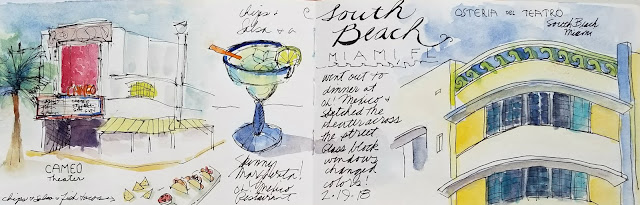 CAMEO
CAMEO
Theater
chips +
Salsa + a
Skinny
Margherita!
Oh! Mexico
Restaurant
South
Beach
MIAMI FL
went out to
dinner at
Oh! Mexico +
sketched the
theater across
the street
Glass block
windows
changed
colors!
2.19.18
OSTERIA DEL TEATRO
South Beach
Miami